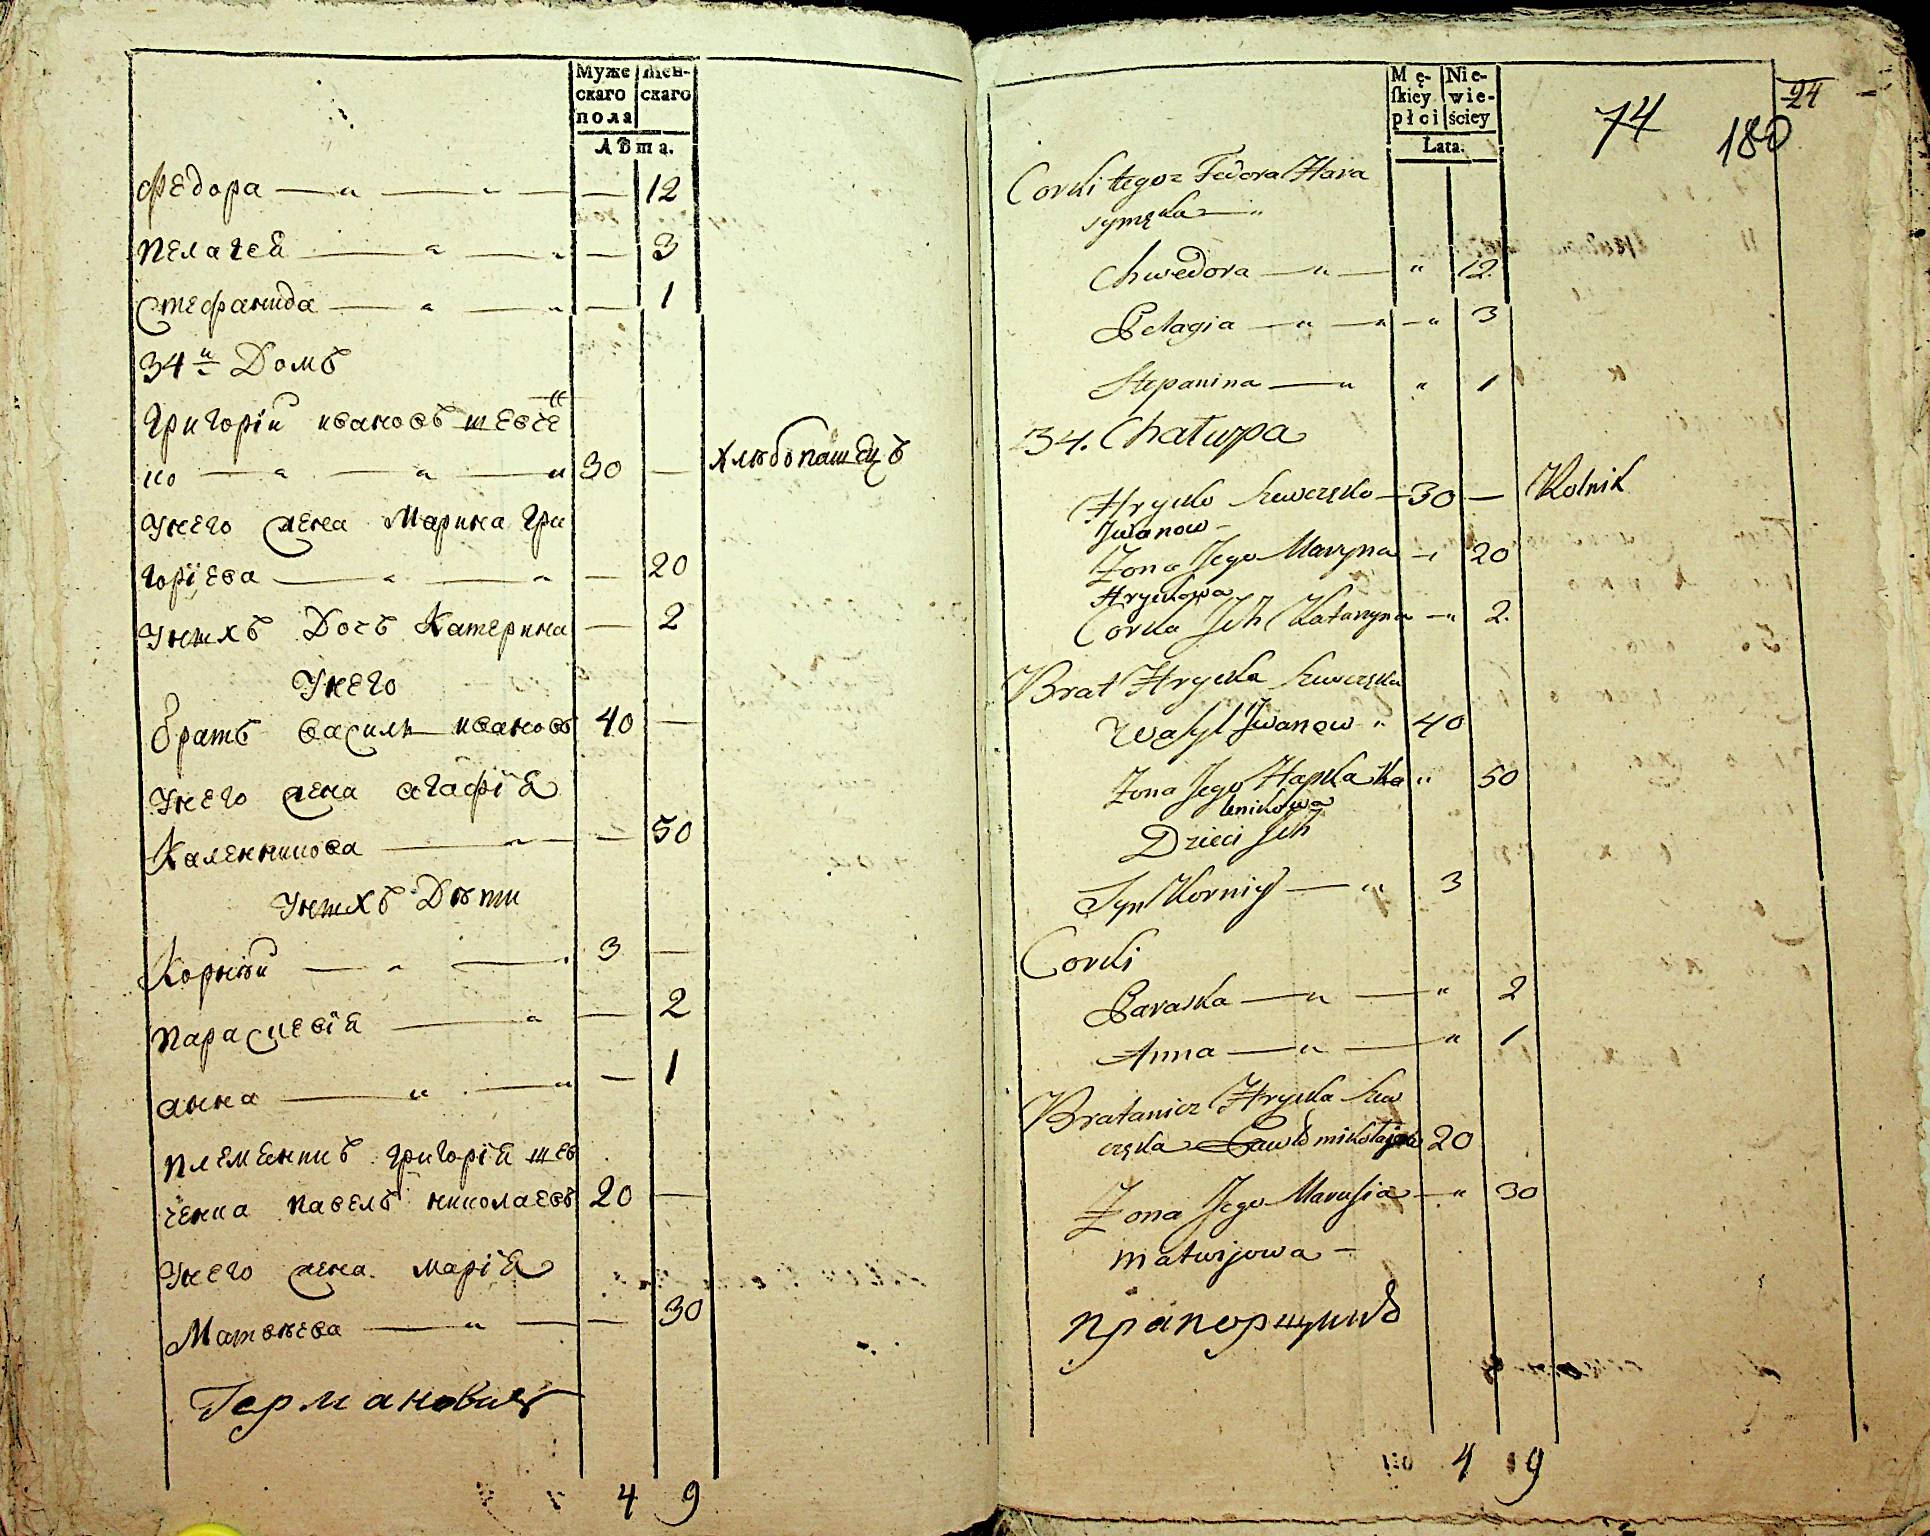 Муже
скаго
пола
Жен-
скаго
Лѣта.
Федора — „ — „ — — 12
Пелагея — „ — „ — 3
Стефанида — „ — „ — 1
34й Домъ
Григорій Ивановъ Шевче
нко — „ — „ — „ 30 — Хлѣбопашецъ
У него жена Марина Гри
горіева — „ — „ — 20
У нихъ Дочь Катерина — 2
У него
братъ Василй Ивановъ 40 —
У него жена Агафія
Каленникова — „ — 50
У нихъ Дѣти
Корнѣй — „ — 3 —
Параскевія — „ — 2
Анна — „ — „ — 1
Племенникъ Григорія Шев
ченка Павелъ Николаевъ 20 —
У него жена Марія
Матвѣева — „ — — 30
Германович
4 9
Mę-
skiey
płci
Nie-
wie-
ściey
Lata.
74
180
24
Corki tegoz Fedora Hara
symęka — „
Chwedora — „ — „ 12
Pelagia — „ — „ — „ 3
Stepanina — „ „ 1
34. Chatupa
Hrycko Szewczęko — 30 — Rolnik
Iwanow —
Żona Jego Maryna — „ 20
Hryckowa
Corka Ich Katarzyna — „ 2.
Brat Hrycka Szewczęka
Wasyl Iwanow „ 40
Żona Jego Hapka Ka „ 50
lenikowa
Dzieci Ich
Syn Korniy — „ 3
Corki
Paraska — „ — „ 2
Anna — „ — „ 1
Bratanicz Hrycka Szew
częka Pawło Mikołajow 20
Żona Jego Marusia — „ 30
Matwijowa —
Прапорщикъ
4 9